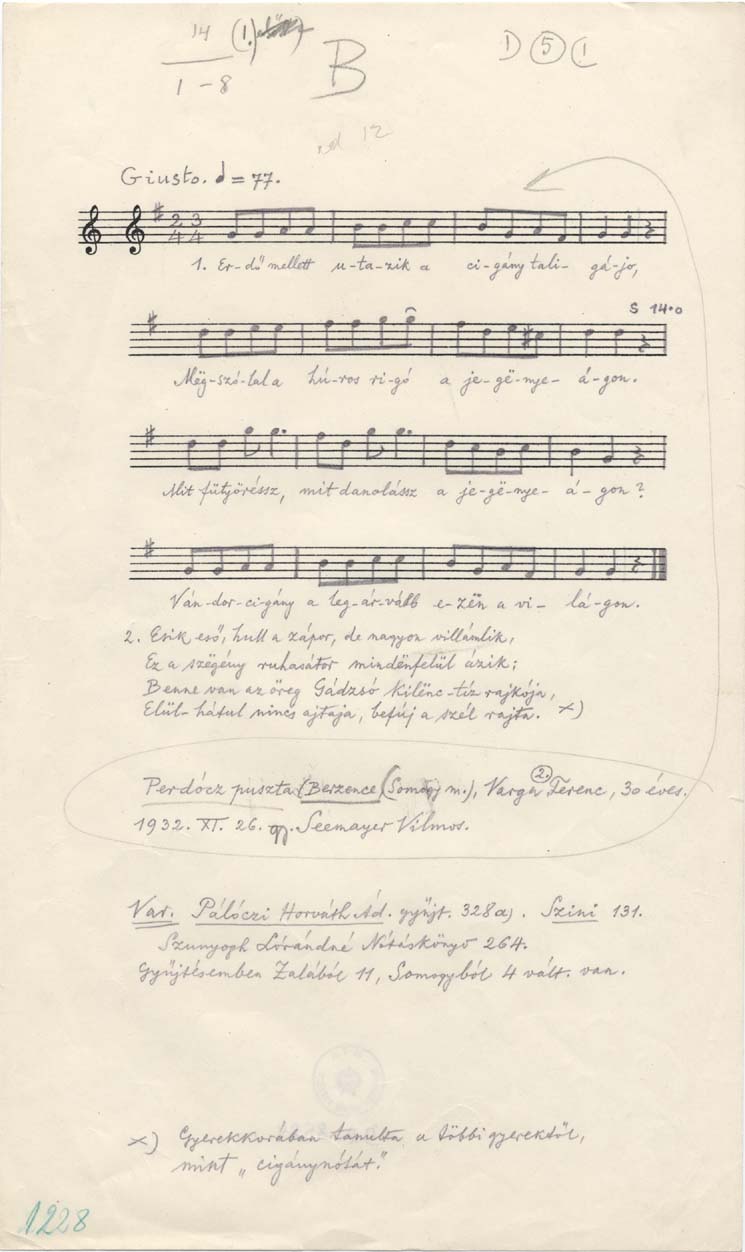 14 (1.)
1-8
B
D (5) (1
12
Giusto. = 77.
2 3
4 4
1. Er-dő mellett u-ta-zik a ci-gány tali- gá-jo,
S 14.0
Mëg-szó-lal a hú-ros ri-gó a je-gë-nye- á-gon.
Mit fütyörészsz, mit danolászsz a je-gë-nye- á-gon?
Ván-dor-ci-gány a leg-ár-vább e-zën a vi- lá-gon.
2. Esik eső, hull a zápor, de nagyon villámlik,
Ez a szëgény ruhasátor mindënfelül ázik;
Benne van az öreg Gádzsó kilënc-tíz rajkója,
Elül-hátul nincs ajtaja, befúj a szél rajta. ×)
Perdócz puszta (Berzence (Somogy m.), Varga 2. Ferenc, 30 éves.
1932. XI. 26. gy. Seemayer Vilmos.
Var. Pálóczi Horváth Ád. gyűjt. 328a). Szini 131.
Szunyogh Lórándné Nótáskönyv 264.
Gyűjtésemben Zalából 11, Somogyból 4 vált. van.
×) Gyerekkorában tanulta a többi gyerektől,
mint „cigánynótát."
1228